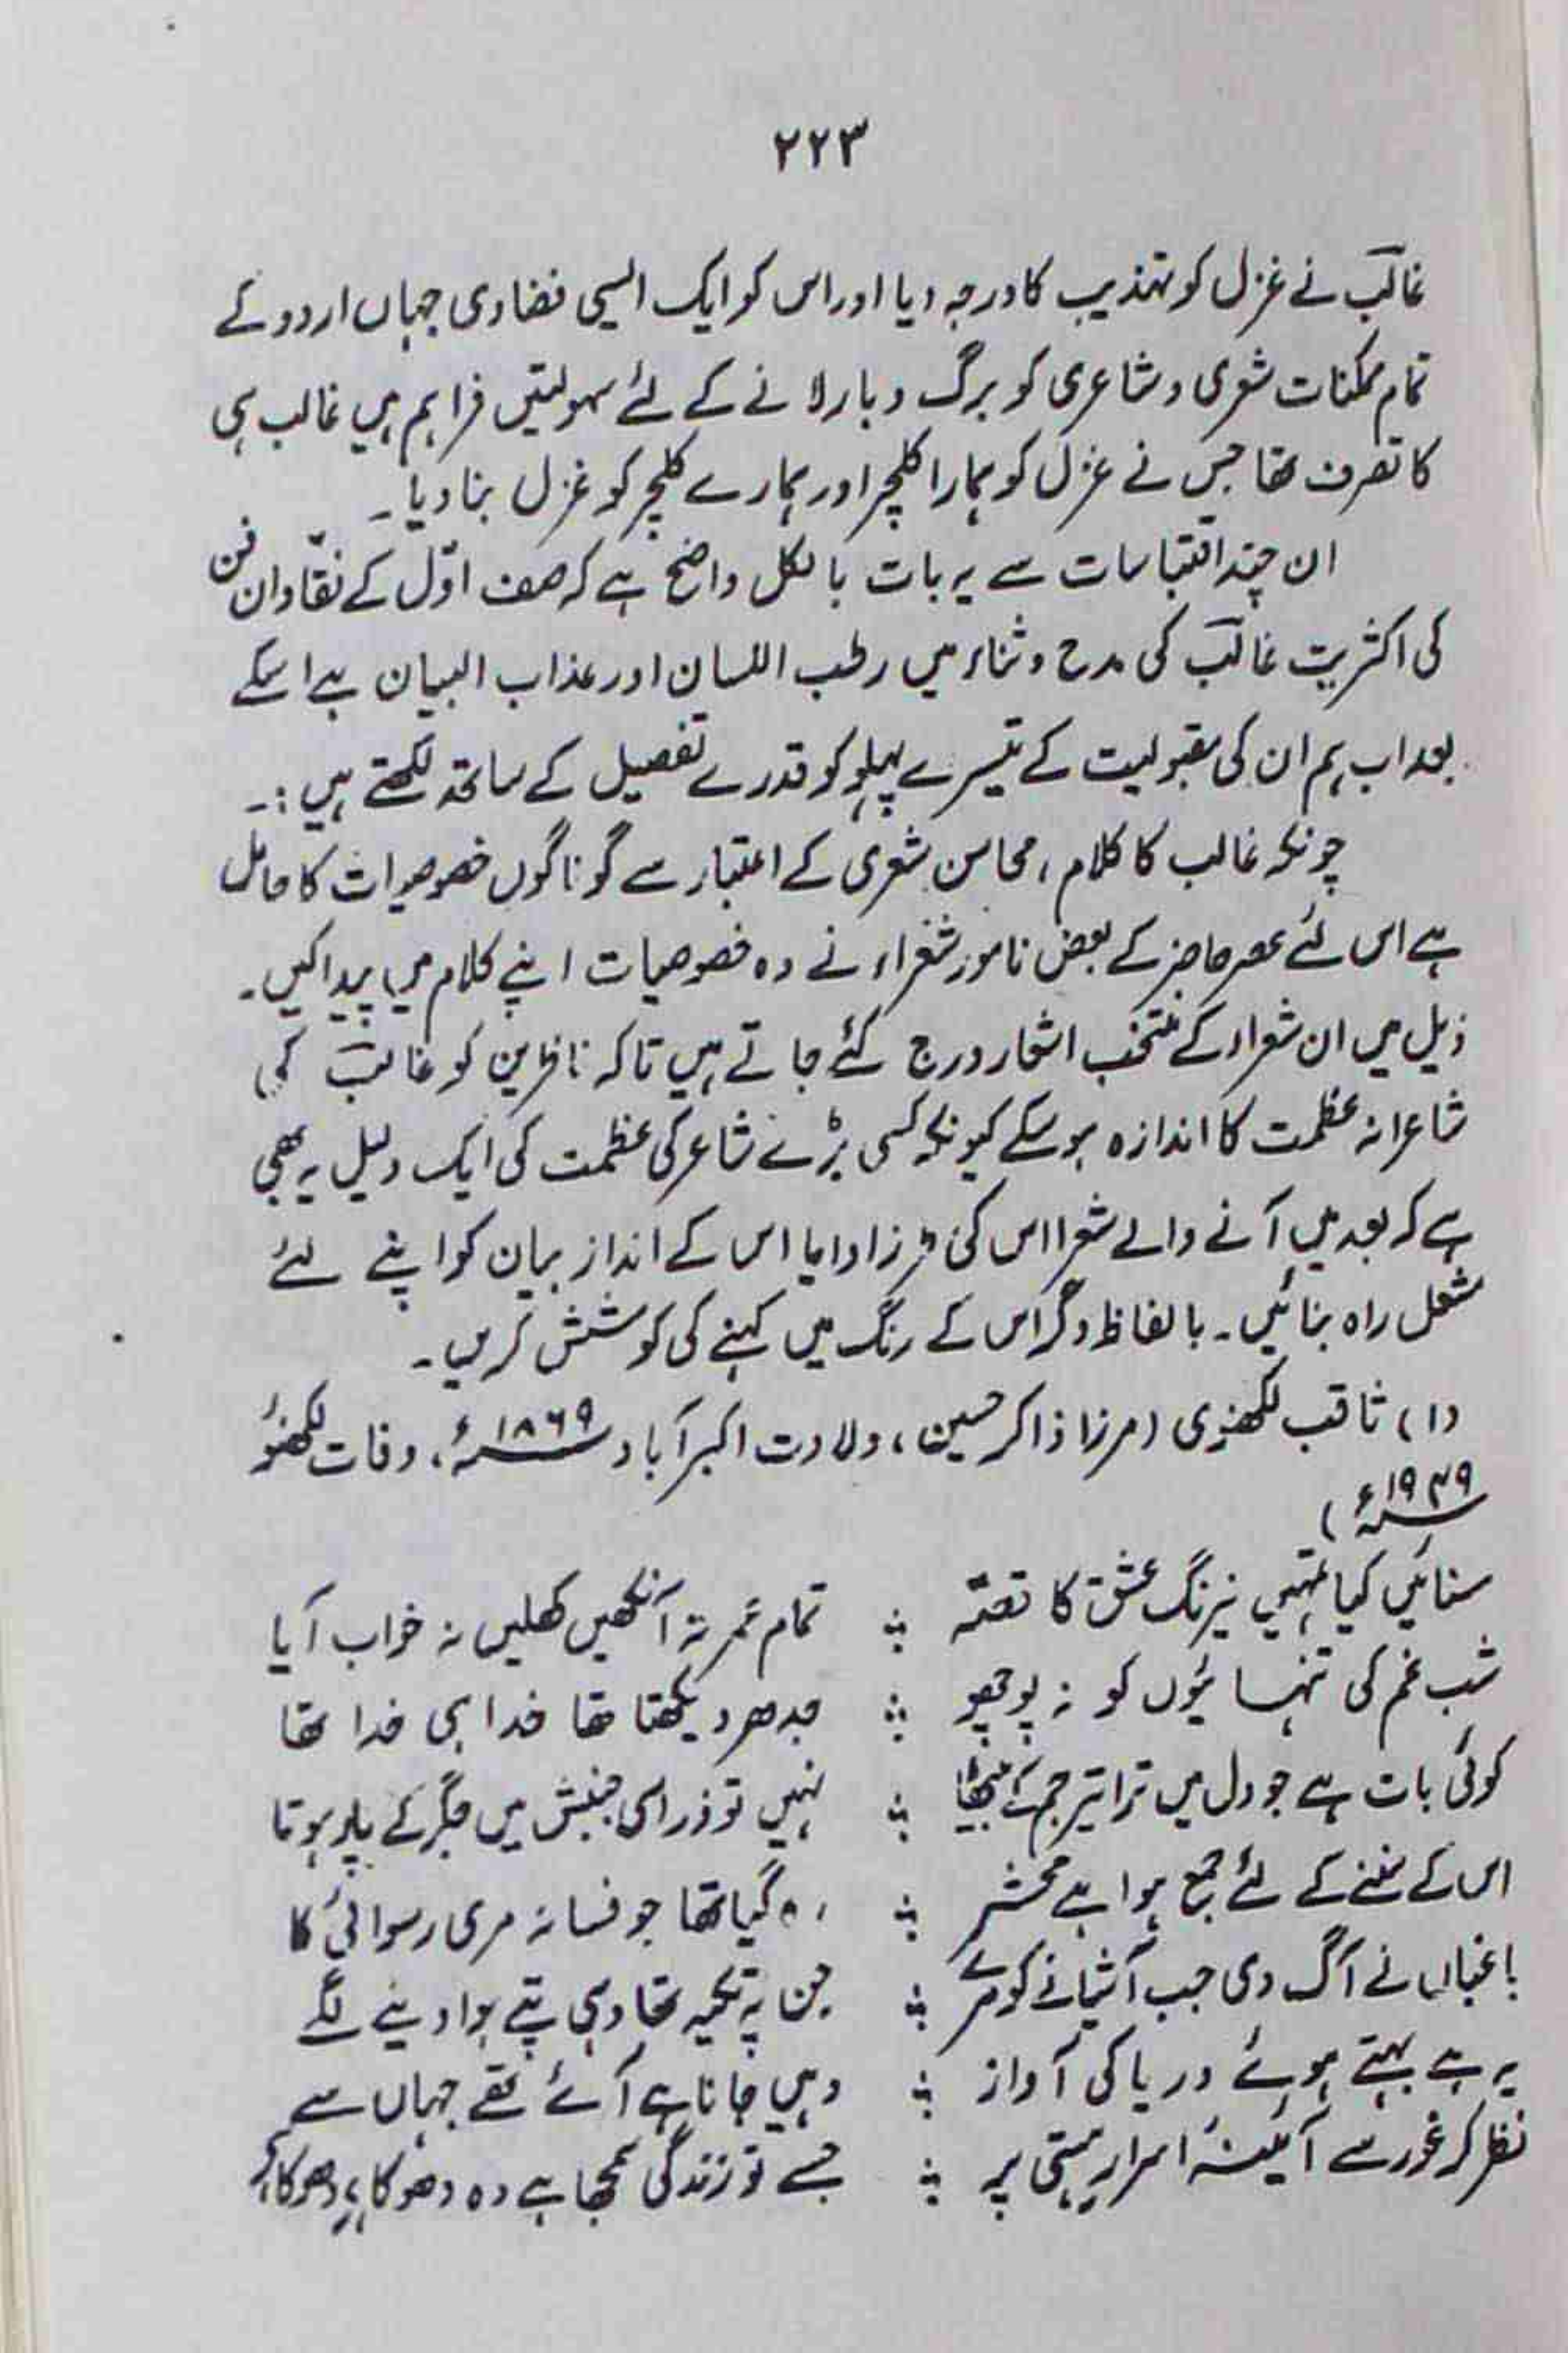 ۲۲۳
غالبؔ نے غزل کو تہذیب کا درجہ دیا اور اس کو ایک ایسی فضا دی جہاں اردو کے
تمام ممکنات شعری و شاعری کو برگ و بار لانے کے لئے سہولتیں فراہم ہیں غالب ہی
کا تصرف تھا جس نے غزل کو ہمارا کلچر اور ہمارے کلچر کو غزل بنا دیا۔
ان چند اقتباسات سے یہ بات بالکل واضح ہے کہ صف اوّل کے نقّادان فن
کی اکثریت غالبؔ کی مدح و ثناء میں رطب اللسان اور عذاب البیان ہے اسکے
بعد اب ہم ان کی مقبولیت کے تیسرے پہلو کو قدرے تفصیل کے ساتھ لکھتے ہیں :۔
چونکہ غالب کا کلام، محاسن شعری کے اعتبار سے گوناگوں خصوصیات کا حامل
ہے اس لئے عصر حاضر کے بعض نامور شعراء نے وہ خصوصیات اپنے کلام میں پیدا کیں۔
ذیل میں ان شعراء کے منتخب اشعار درج کئے جاتے ہیں تاکہ ناظرین کو غالبؔ کی
شاعرانہ عظمت کا اندازہ ہو سکے کیونکہ کسی بڑے شاعر کی عظمت کی ایک دلیل یہ بھی
ہے کہ بعد میں آنے والے شعرا اس کی طرز ادا یا اس کے انداز بیان کو اپنے لئے
مشعل راہ بنائیں۔ بالفاظ دگر اس کے رنگ میں کہنے کی کوشش کریں۔
(۱) ثاقب لکھنوی (مرزا ذاکر حسین، ولادت اکبر آباد ۱۸۶۹ء، وفات لکھنؤ
۱۹۴۹ء)
سنائیں کیا تمہیں نیرنگ عشق کا قصّہ ؛ تمام عمر نہ آنکھیں کھلیں نہ خواب آیا
شب غم کی تنہائیوں کو نہ پوچھو ؛ جدھر دیکھتا تھا خدا ہی خدا تھا
کوئی بات ہے جو دل میں ترا تیر جم کے بیٹھا ؛ نہیں تو ذرا سی جنبش میں جگر کے پار ہوتا
اس کے سننے کے لئے جمع ہوا ہے محشر ؛ رہ گیا تھا جو فسانہ مری رسوائی کا
باغباں نے آگ دی جب آشیانے کو مرے ؛ جن پہ تکیہ تھا وہی پتے ہوا دینے لگے
یہ ہے بہتے ہوئے دریا کی آواز ؛ وہیں جانا ہے آئے تھے جہاں سے
نظر کر غور سے آئینۂ اسرارِ ہستی پر ؛ جسے تو زندگی سمجھا ہے وہ دھوکا ہی دھوکا ہے